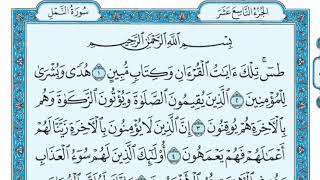 سُورَةُ النَّمْلِ
الجُزْءُ التَّاسِعَ عَشَرَ
بِسْمِ اللَّهِ الرَّحْمَٰنِ الرَّحِيمِ
طسٓ ۚ تِلْكَ ءَايَٰتُ الْقُرْءَانِ وَكِتَابٍ مُّبِينٍ ١ هُدًى وَبُشْرَىٰ
لِلْمُؤْمِنِينَ ٢ الَّذِينَ يُقِيمُونَ الصَّلَوٰةَ وَيُؤْتُونَ الزَّكَوٰةَ وَهُم
بِالْءَاخِرَةِ هُمْ يُوقِنُونَ ٣ إِنَّ الَّذِينَ لَا يُؤْمِنُونَ بِالْءَاخِرَةِ زَيَّنَّا لَهُمْ
أَعْمَٰلَهُمْ فَهُمْ يَعْمَهُونَ ٤ أُوْلَٰٓئِكَ الَّذِينَ لَهُمْ سُوٓءُ الْعَذَابِ